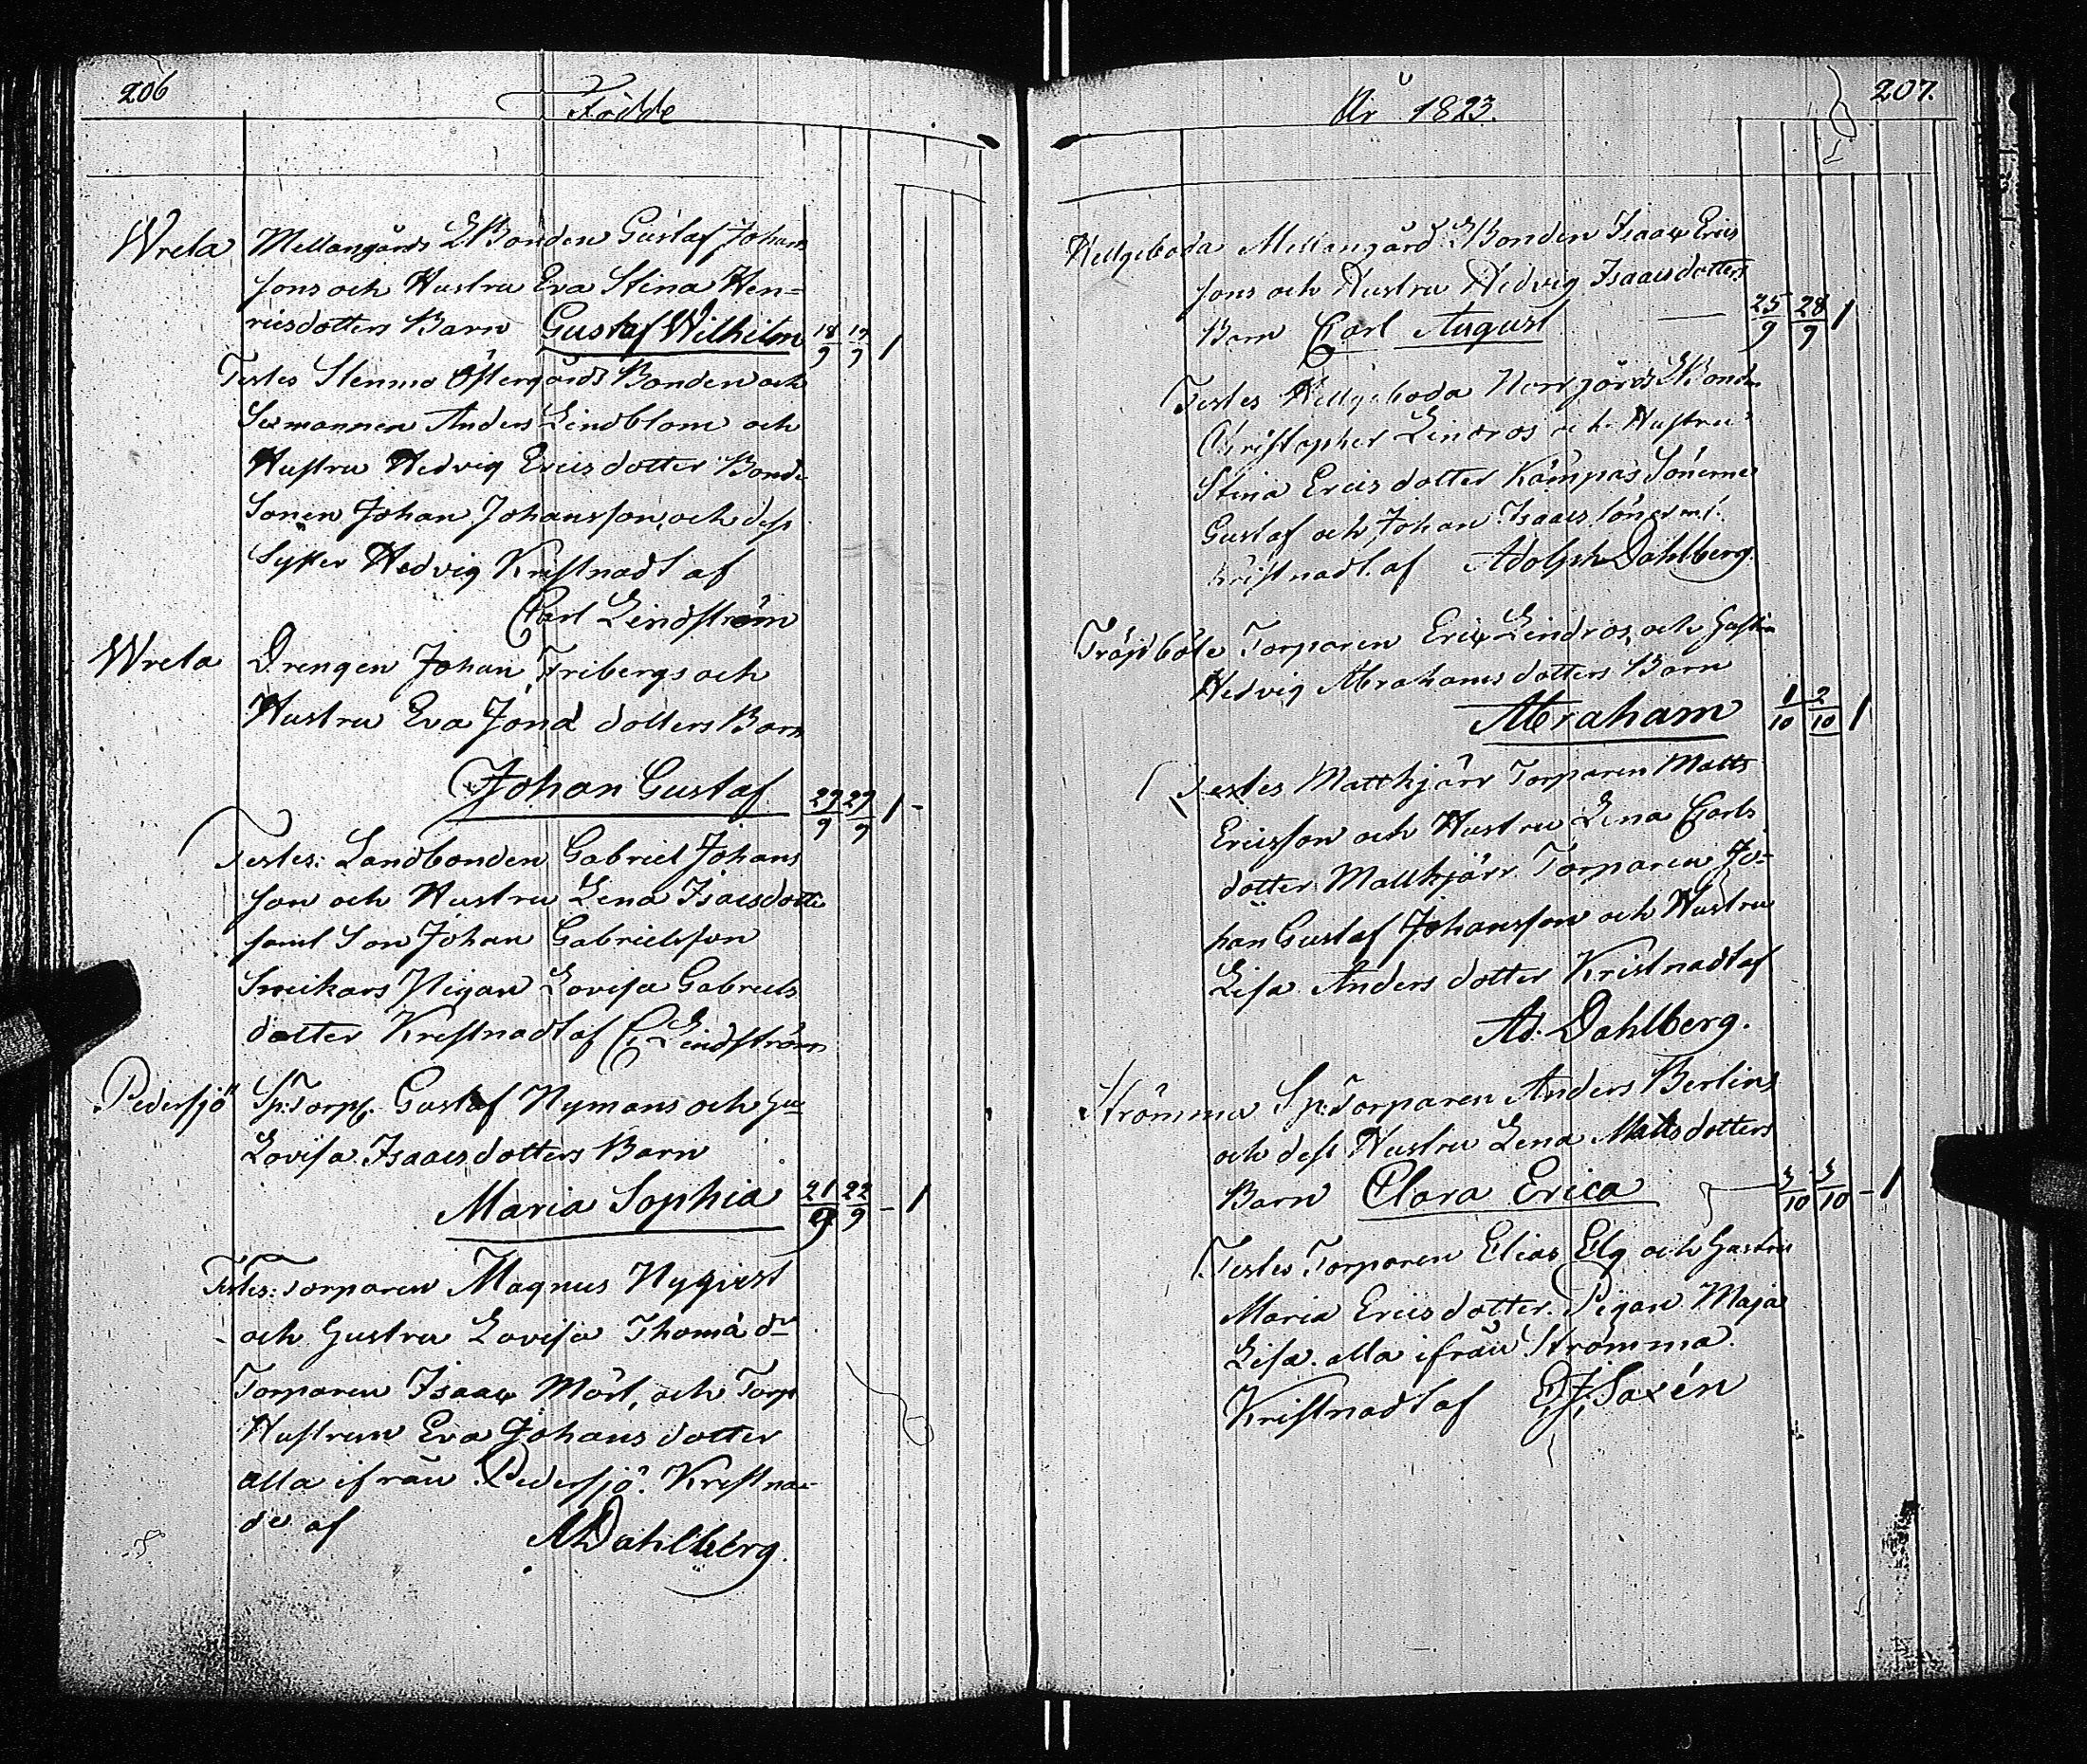 206
Födde
Wrela Mellangårds LBonden Gustaf Johans
sons och Hustru Eva Stina Hen-
ricsdotters Barn Gustaf Wilhelm 18/9 19/9 1
Testes Stenmo Östergårds Bonden och
Sexmannen Anders Lindblom och
Hustru Hedvig Ericsdotter Bonde
Sonen Johan Johansson, och dess
Syster Hedvig Kristnadt af
Carl Lindström
Wrela Drengen Johan Fribergs och
Hustru Eva Jona dotters Barn
Johan Gustaf 29/9 29/9 1 -
Testes: Landbonden Gabriel Johans
son och Hustru Lena Isacsdotter
samt Son Johan Gabrielsson
Pigan Lovisa Gabriels
dotter Kristnadt af C. Lindström
Pedersjö Sp: Torp. Gustaf Nymans och Hu
Lovisa Isaacsdotters Barn
Maria Sophia 21/9 22/9 - 1
Testes: Torparen Magnus Nyqvist
och Hustru Lovisa Thomæ dr
Torparen Isaac Mört, och Torp
Hustrun Eva Johans dotter
alla ifrån Pedersjö. Kristna-
de af ADahlberg.
År 1823.
207.
Hellgeboda Mellangård LBonden Isaac Erics
sons och Hustru Hedvig Isaacsdotters
Barn Carl August 25/9 28/9 1
Testes Hellgeboda Norrgårds LBonden
Christopher Lindros och Hustru
Stina Erics dotter Kämpas Sönerne
Gustaf och Johan Isaacs söner
Kristnadt af Adolph Dahlberg.
Fröjdböle Torparen Eric Lindros, och Hustru
Hedvig Abrahams dotters Barn
Abraham 1/10 2/10 1
Testes Mattkjärr Torparen Matts
Ericsson och Hustru Lena Carls
dotter Mattkjärr Torparen Jo-
han Gustaf Johansson och Hustru
Lisa Anders dotter Kristnadt af
Ad. Dahlberg.
Strömma Sp: Torparen Anders Berlins
och dess Hustru Lena Matts dotters
Barn Clara Erica 3/10 3/10 - 1
Testes Torparen Elias Elg och Hustru
Maria Erics dotter. Pigan Maja
Lisa. alla ifrån Strömma.
Kristnadt af E, J, Saxén